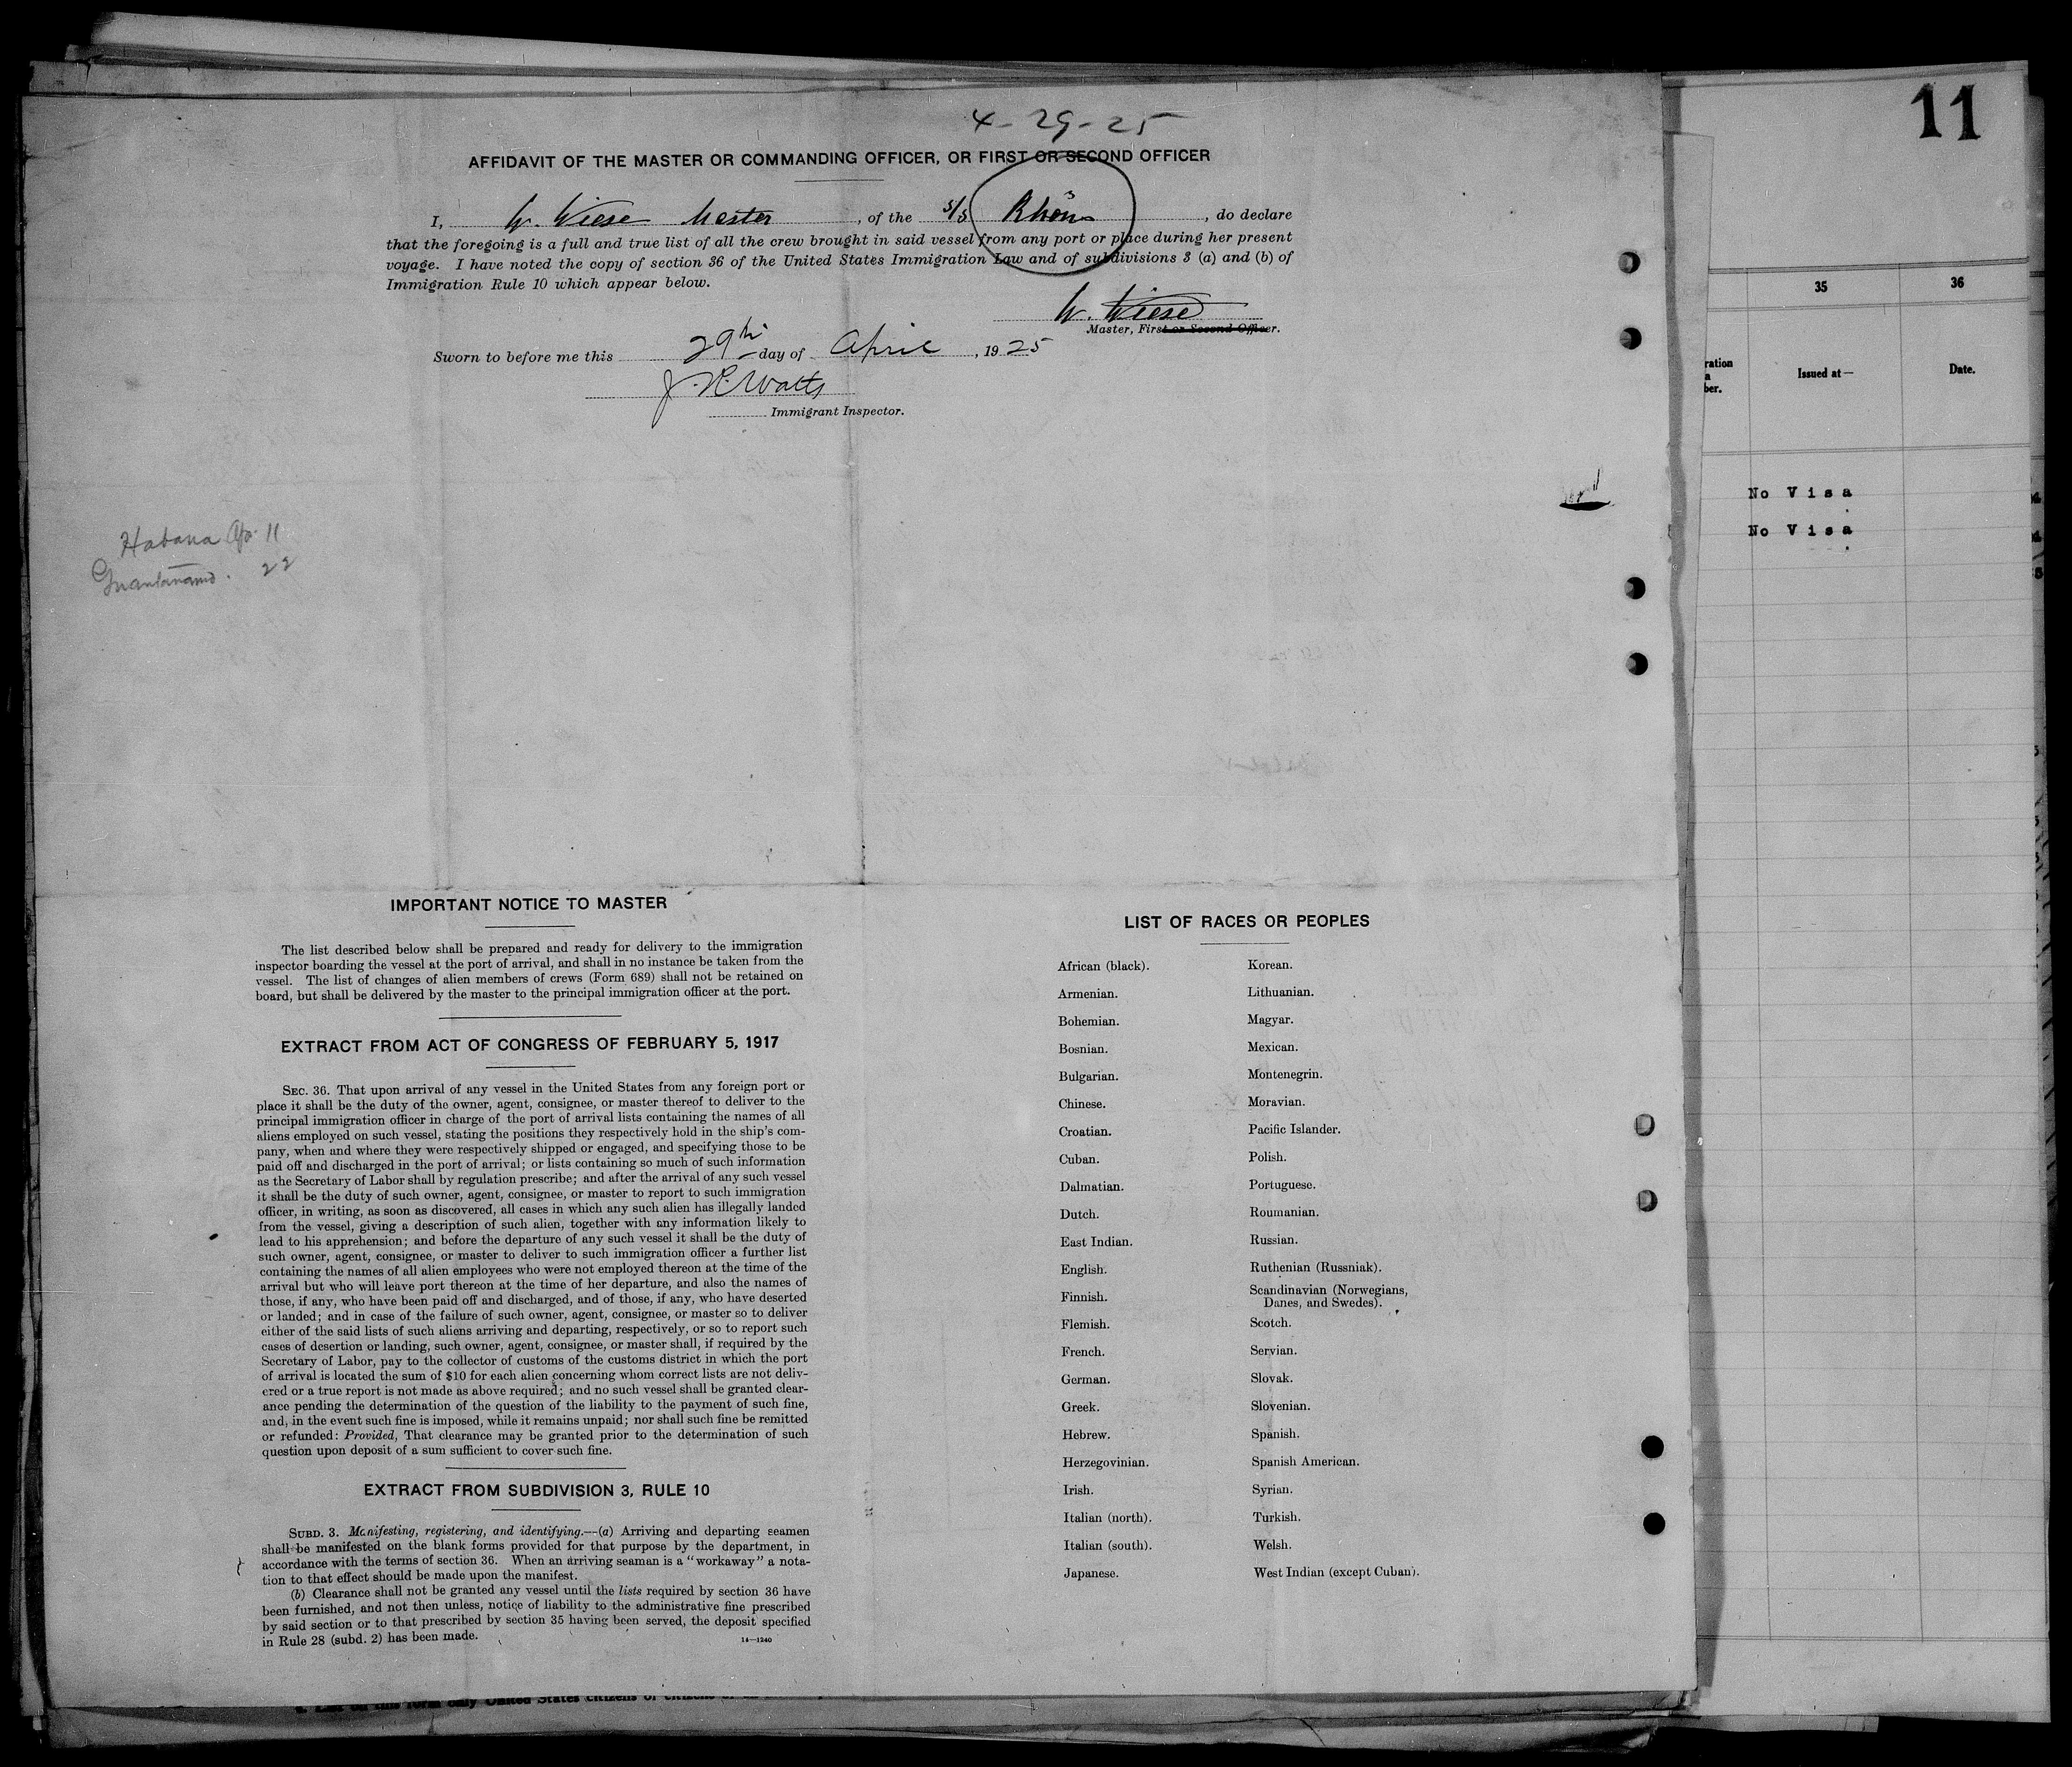 4-29-25
AFFIDAVIT OF THE MASTER OR COMMANDING OFFICER, OR FIRST OR SECOND OFFICER
I, W. Wiese Master, of the s/s Rhön, do declare
that the foregoing is a full and true list of all the crew brought in said vessel from any port or place during her present
voyage. I have noted the copy of section 36 of the United States Immigration Law and of subdivisions 3 (a) and (b) of
Immigration Rule 10 which appear below.
W. Wiese
Master, First or Second Officer.
Sworn to before me this 29th day of April, 1925
J. R. Watts
Immigrant Inspector.
Habana Ap. 11
Guantanamo. 22
IMPORTANT NOTICE TO MASTER
The list described below shall be prepared and ready for delivery to the immigration
inspector boarding the vessel at the port of arrival, and shall in no instance be taken from the
vessel. The list of changes of alien members of crews (Form 689) shall not be retained on
board, but shall be delivered by the master to the principal immigration officer at the port.
EXTRACT FROM ACT OF CONGRESS OF FEBRUARY 5, 1917
SEC. 36. That upon arrival of any vessel in the United States from any foreign port or
place it shall be the duty of the owner, agent, consignee, or master thereof to deliver to the
principal immigration officer in charge of the port of arrival lists containing the names of all
aliens employed on such vessel, stating the positions they respectively hold in the ship's com-
pany, when and where they were respectively shipped or engaged, and specifying those to be
paid off and discharged in the port of arrival; or lists containing so much of such information
as the Secretary of Labor shall by regulation prescribe; and after the arrival of any such vessel
it shall be the duty of such owner, agent, consignee, or master to report to such immigration
officer, in writing, as soon as discovered, all cases in which any such alien has illegally landed
from the vessel, giving a description of such alien, together with any information likely to
lead to his apprehension; and before the departure of any such vessel it shall be the duty of
such owner, agent, consignee, or master to deliver to such immigration officer a further list
containing the names of all alien employees who were not employed thereon at the time of the
arrival but who will leave port thereon at the time of her departure, and also the names of
those, if any, who have been paid off and discharged, and of those, if any, who have deserted
or landed; and in case of the failure of such owner, agent, consignee, or master so to deliver
either of the said lists of such aliens arriving and departing, respectively, or so to report such
cases of desertion or landing, such owner, agent, consignee, or master shall, if required by the
Secretary of Labor, pay to the collector of customs of the customs district in which the port
of arrival is located the sum of $10 for each alien concerning whom correct lists are not deliv-
ered or a true report is not made as above required; and no such vessel shall be granted clear-
ance pending the determination of the question of the liability to the payment of such fine,
and, in the event such fine is imposed, while it remains unpaid; nor shall such fine be remitted
or refunded: Provided, That clearance may be granted prior to the determination of such
question upon deposit of a sum sufficient to cover such fine.
EXTRACT FROM SUBDIVISION 3, RULE 10
SUBD. 3. Manifesting, registering, and identifying.—(a) Arriving and departing seamen
shall be manifested on the blank forms provided for that purpose by the department, in
accordance with the terms of section 36. When an arriving seaman is a "workaway" a nota-
tion to that effect should be made upon the manifest.
(b) Clearance shall not be granted any vessel until the lists required by section 36 have
been furnished, and not then unless, notice of liability to the administrative fine prescribed
by said section or to that prescribed by section 35 having been served, the deposit specified
in Rule 28 (subd. 2) has been made.
14—1240
LIST OF RACES OR PEOPLES
African (black).
Armenian.
Bohemian.
Bosnian.
Bulgarian.
Chinese.
Croatian.
Cuban.
Dalmatian.
Dutch.
East Indian.
English.
Finnish.
Flemish.
French.
German.
Greek.
Hebrew.
Herzegovinian.
Irish.
Italian (north).
Italian (south).
Japanese.
Korean.
Lithuanian.
Magyar.
Mexican.
Montenegrin.
Moravian.
Pacific Islander.
Polish.
Portuguese.
Roumanian.
Russian.
Ruthenian (Russniak).
Scandinavian (Norwegians,
Danes, and Swedes).
Scotch.
Servian.
Slovak.
Slovenian.
Spanish.
Spanish American.
Syrian.
Turkish.
Welsh.
West Indian (except Cuban).
11
35 36
Issued at— Date.
No Visa
No Visa